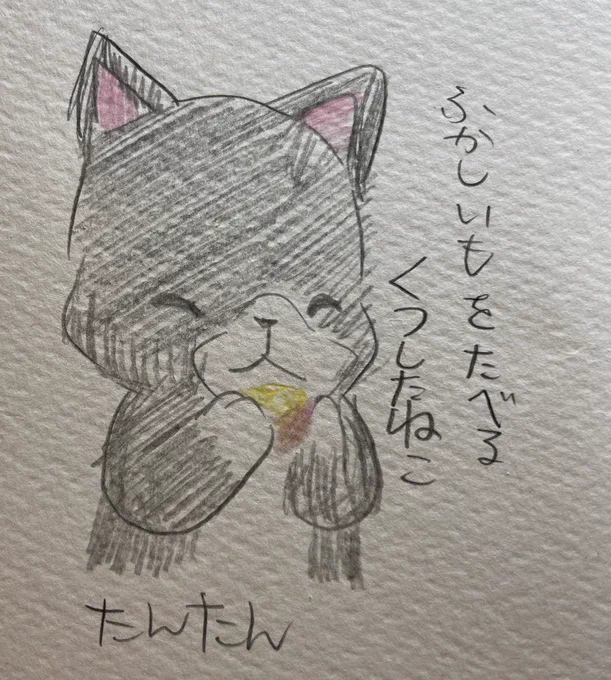 ふかしいもをたべる
くつしたねこ
たんたん